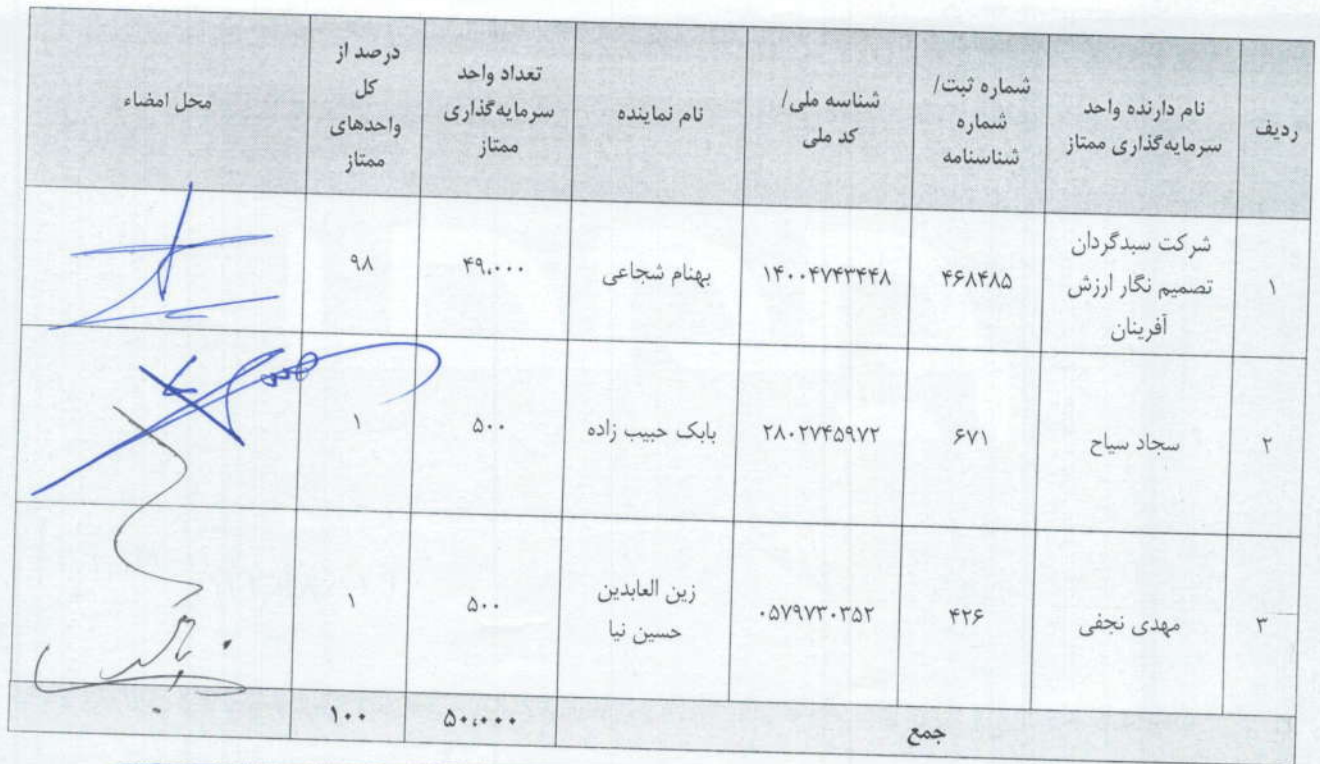 ردیف
نام دارنده واحد
سرمایه‌گذاری ممتاز
شماره ثبت/
شماره
شناسنامه
شناسه ملی/
کد ملی
نام نماینده
تعداد واحد
سرمایه‌گذاری
ممتاز
درصد از
کل
واحدهای
ممتاز
محل امضاء
۱
شرکت سبدگردان
تصمیم نگار ارزش
آفرینان
۴۶۸۴۸۵
۱۴۰۰۴۷۴۳۴۴۸
بهنام شجاعی
۴۹،۰۰۰
۹۸
۲
سجاد سیاح
۶۷۱
۲۸۰۲۷۴۵۹۷۲
بابک حبیب زاده
۵۰۰
۱
۳
مهدی نجفی
۴۲۶
۰۵۷۹۷۳۰۳۵۲
زین العابدین
حسین نیا
۵۰۰
۱
جمع
۵۰،۰۰۰
۱۰۰